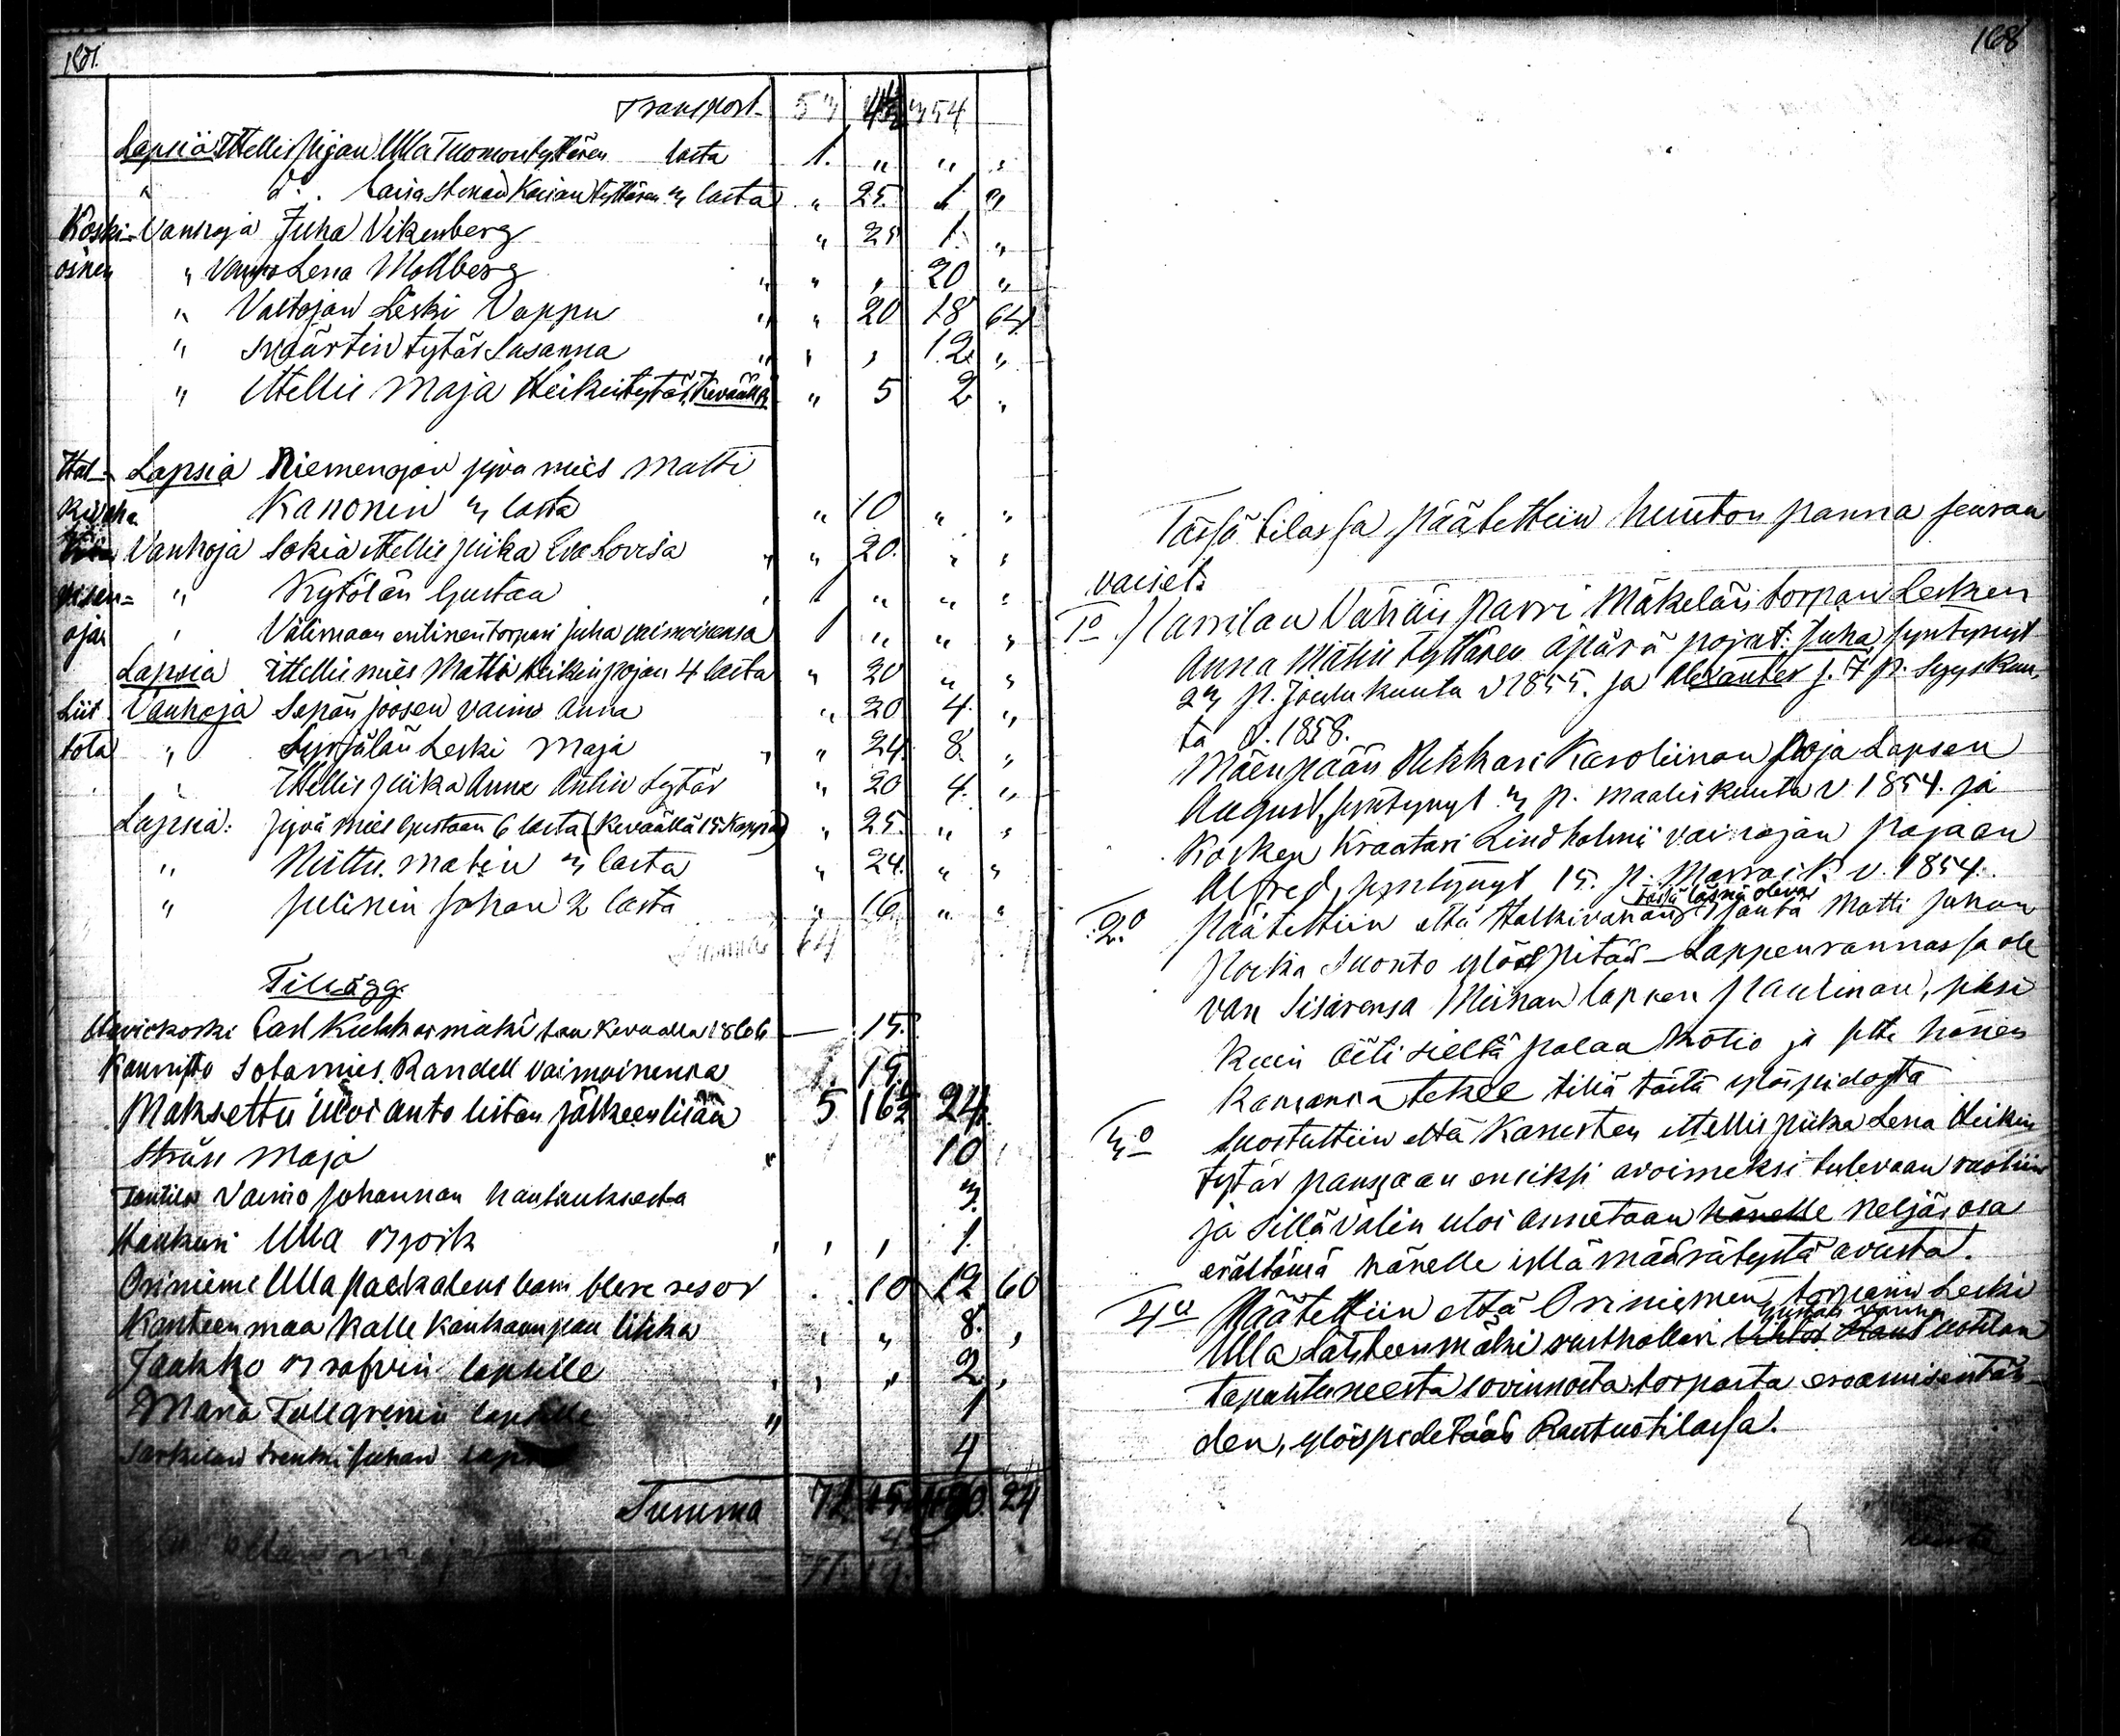 167.
Transport 53 4½ 354
Lapsia Ittellis piijan Ulla Tuomontyttären lasta 1. " " "
" d:o Caisa Stenan Kaisan tyttären 3 lasta " 25. 1 "
Koski- Vanhoja Juha Vikenberg " 25 1. "
oinen " Vaimo Lena Mollberg " " " 20 "
" Valtojan Leski Vappu " " 20 18 64
" Määrtin tytär Susanna " " " 12 "
" Ittellis Maja Heikin tytär, Keväällä " 5 2 "
Hal- Lapsia Niemenojan jyvä mies Matti
kivaha Kanonin 3 lasta " 10 " "
Vanhoja Sokia ittellis piika Eva Lovisa " " 20. " "
" Kytölän Gustaa 1 " " "
ojan " Välimaan entinen torpari Juha vaimoinensa 1 " " "
Lapsia Ittellis mies Matti Heikinpojan 4 lasta " 20 " "
Liit Vanhoja Sepän Joosen vaimo Anna " 20 4. "
sola " Syrjälän Leski Maja " " 24 8. "
" Ittellis piika Anna Antin tytär " 20 4. "
Lapsia: Jyvä mies Gustaan 6 lasta (Keväällä 15 Kappa) " 25. " "
" Niittu Matin 3 lasta " 24. " "
" Julinin Johan 2 lasta " 16. " "
Summa 64
Tillägg.
Havickoski Carl Kukkarmäki saa Keväällä 1866 — 15.
Kaunisto Sotamies Randell vaimoinensa 1. 15
Maksettu Ulosanto listan jälkeen lisää 5 16½ 24.
Strån Maja " 10
Tontilas Vaimo Johannan hautauksesta 3.
Haukuri Ulla Björk " " " 1.
Orinieme Ulla paikalens been flere resor . 10 12 60
Kanteenmaa Kalle Kankaanpää likka " " 8. "
Jaakko Brofvin lapsille " " " 2 "
Maria Tallgrenin lapsille " 1
Sarkilan trenki Juhan laps 4
Summa 72 24
168
Tässä tilassa päätettiin huuton panna seuraa
vaiset:
1o Hamilan Vähäis Parri Mäkelän torpan Lesken
Anna Matin tyttären äpärä pojat: Juha, syntynyt
23 p. Joulukuuta v 1855. ja Alexanter s. 7 p. Syyskuu,
ta v. 1858.
Mäenpään Pekkari Karoliinan Poja Lapsen
August, syntynyt 3 p. Maaliskuuta v 1854. ja
Kosken Kraatari Lindholmi vainajan Pojaan
Alfred, syntynyt 15. p. Marrask. v. 1854.
tässä läsnä oleva
2:o Päätettiin että Halkivahan isäntä Matti Juhan
Poika Suonto ylös pitää Lappeenrannassa ole
van Sisarensa Miinan lapsen Pauliinan, siksi
kuin Äiti sieltä palaa kotio ja sitte hänen
kansansa tekee tiliä tästä ylöspidosta
3o Suostuttiin että Kanusten ittellis piika Lena Heikin
tytär pannaan ensiksi avoimeksi tulevaan vaotiin
ja sillä välin ulos annetaan hänelle neljäs osa
erältänsä hänelle yllä määrätystä avusta.
4o Päätettiin että Oriniemen torpann Leski
Gustaa vanna
Ulla Lätteenmäki rusthollari Vihtor Rautuotilan
tapahtuneesta sovinnosta torpasta eroamisentäh-
den, ylöspidetään Rautuotilassa.